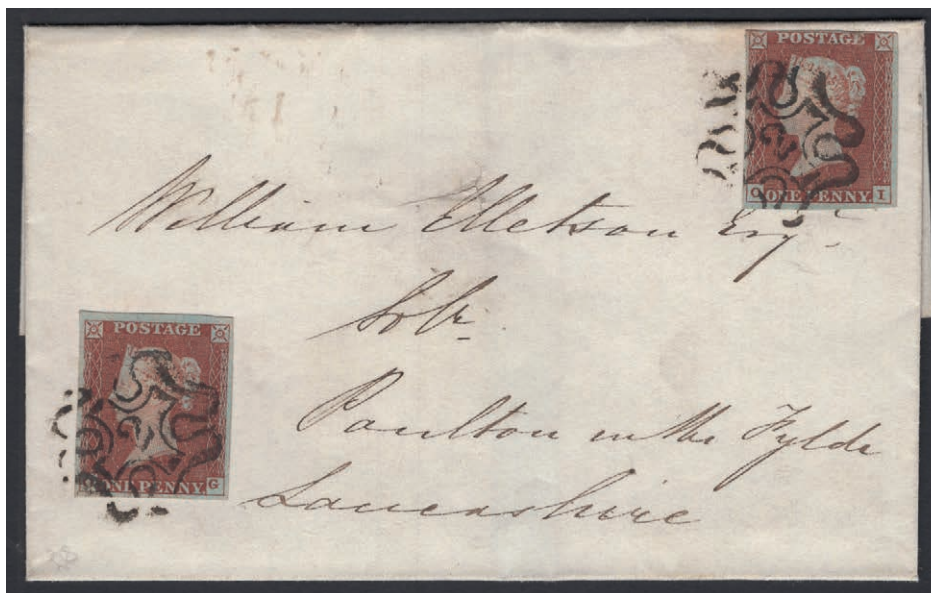 POSTAGE
Q ONE PENNY I
William Elletson Esqr.
Solr.
Poulton in the Fylde
Lancashire
POSTAGE
ONE PENNY G
2
2